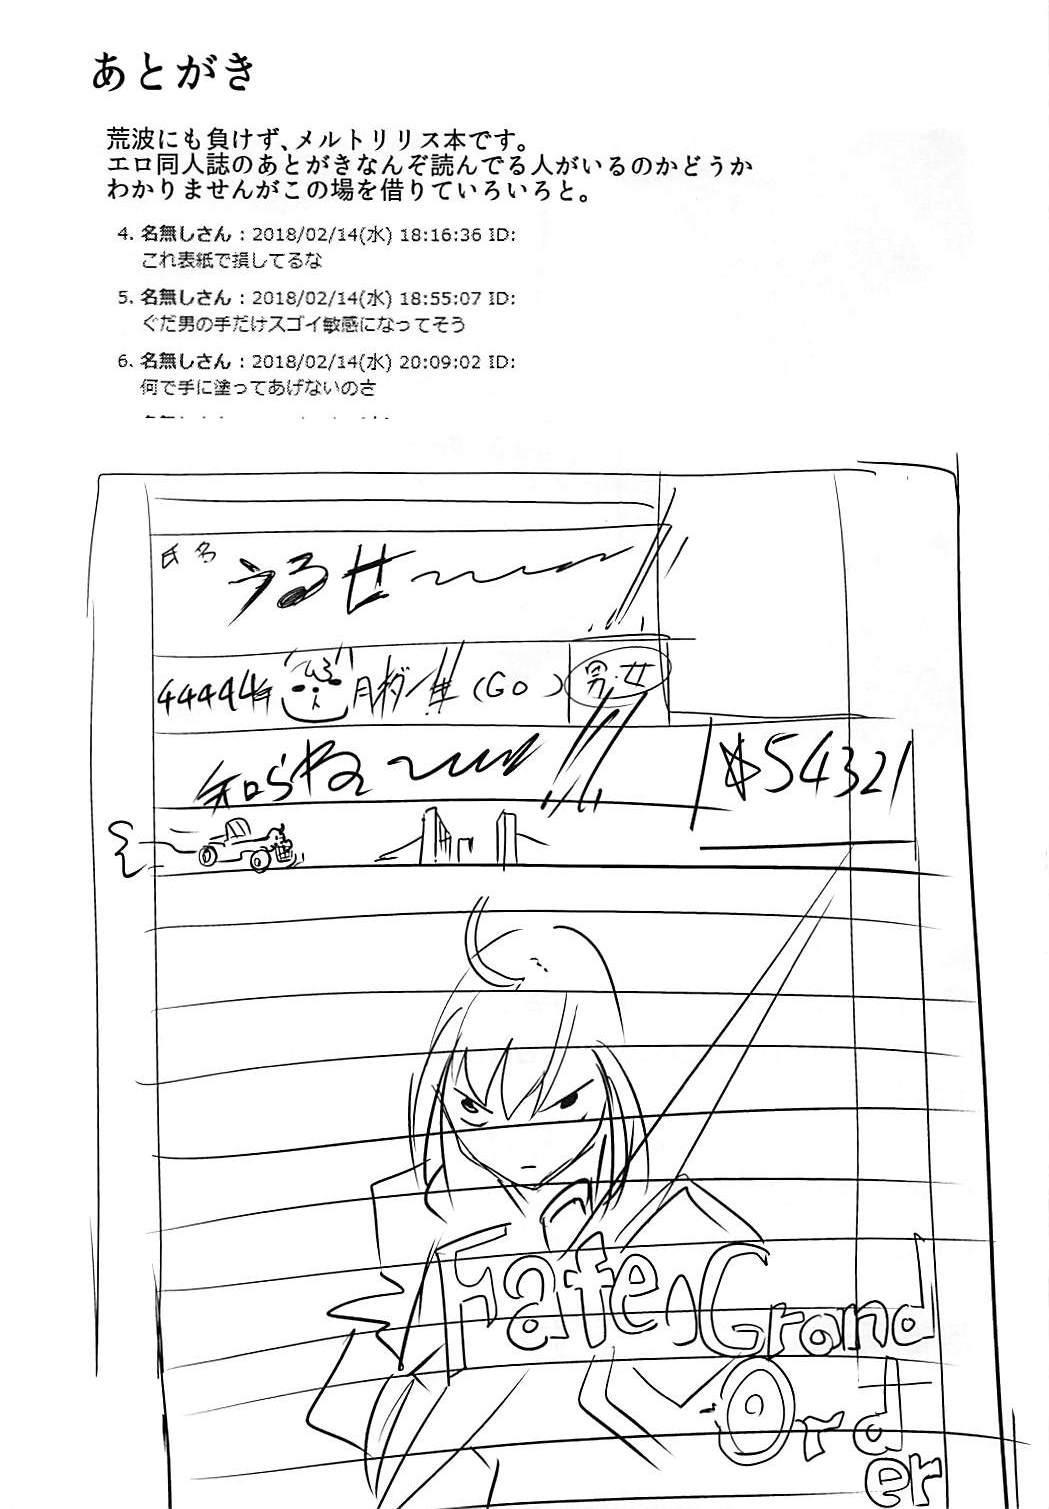 あとがき
荒波にも負けず、メルトリリス本です。
エロ同人誌のあとがきなんぞ読んでる人がいるのかどうか
わかりませんがこの場を借りていろいろと。
4. 名無しさん：2018/02/14(水) 18:16:36 ID:
これ表紙で損してるな
5. 名無しさん：2018/02/14(水) 18:55:07 ID:
ぐだ男の手だけスゴイ敏感になってそう
6. 名無しさん：2018/02/14(水) 20:09:02 ID:
何で手に塗ってあげないのさ
氏名
うるせ〜〜〜!!
44444年
月 (GO)
男・女
知らね〜〜〜!!
54321
Fate/Grand
Order